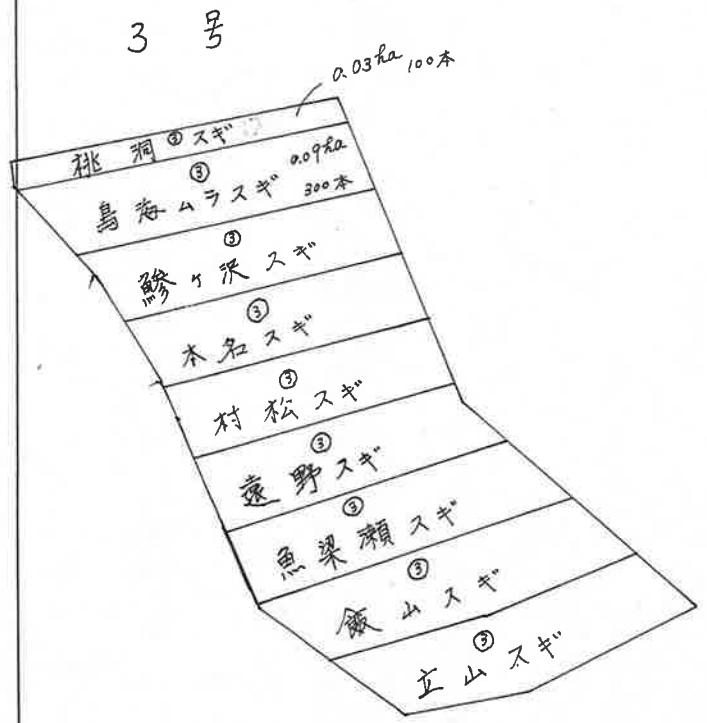 3 号
0.03ha 100本
桃洞③スギ
③ 0.09ha
鳥海ムラスギ 300本
③
鰺ヶ沢スギ
③
本名スギ
③
村松スギ
③
遠野スギ
③
魚梁瀬スギ
③
飯山スギ
③
立山スギ